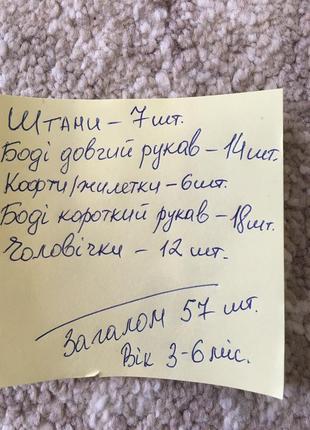 Штани - 7 шт.
Боді довгий рукав - 14 шт.
Кофти/жилетки - 6 шт.
Боді короткий рукав - 18 шт.
Чоловічки - 12 шт.
Загалом 57 шт.
Вік 3-6 міс.